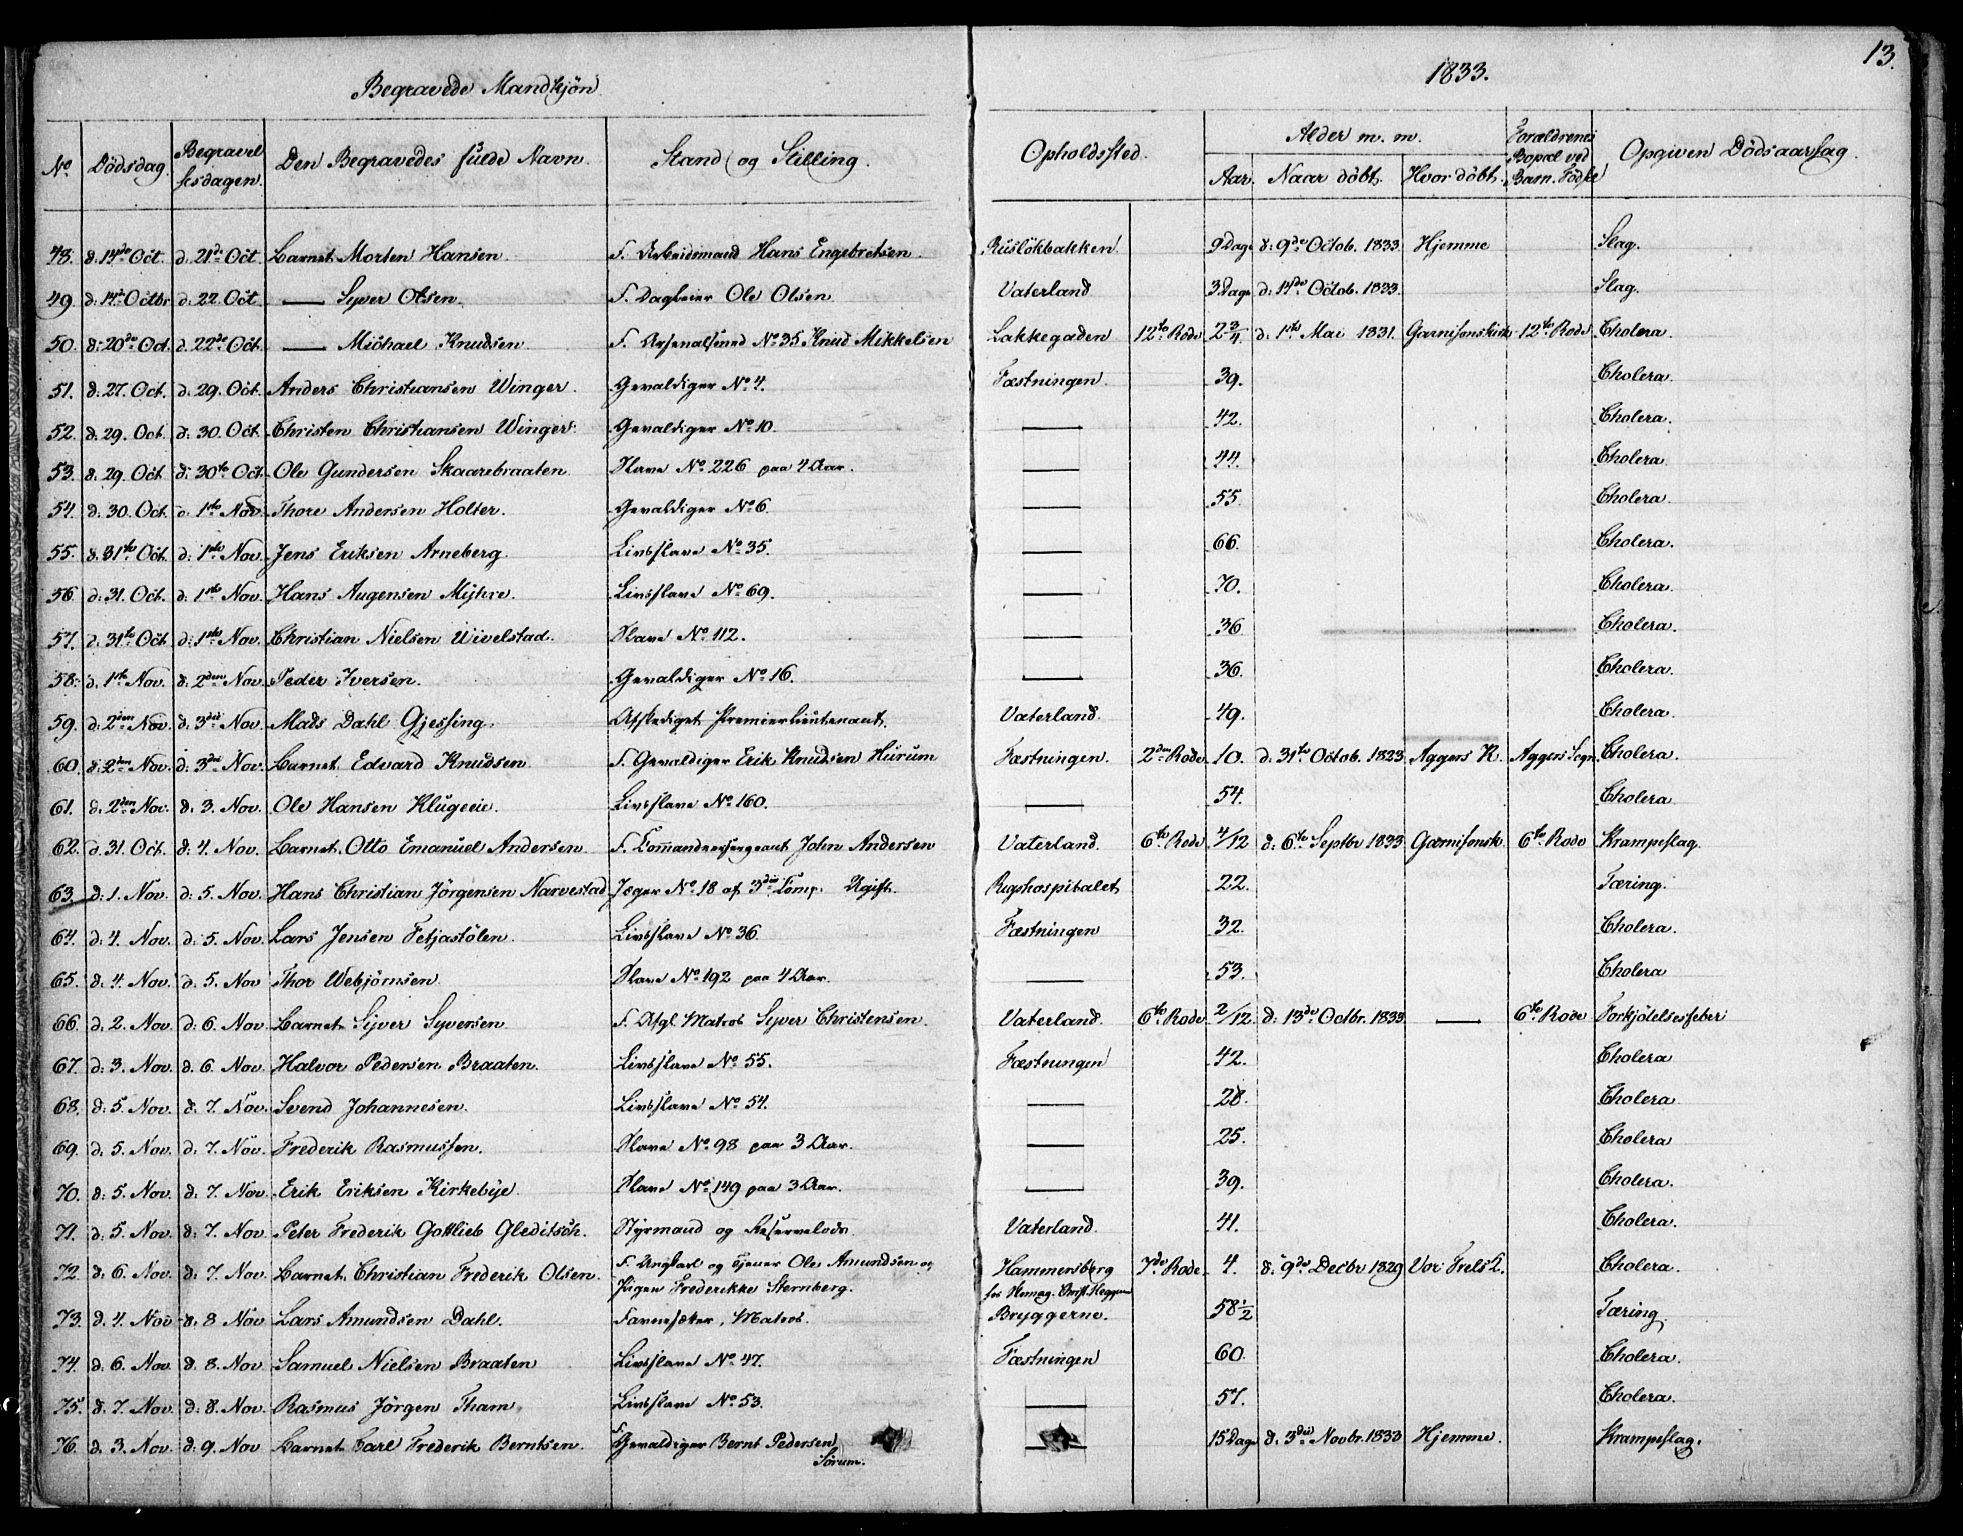 13.
Begravede Mandkjön 1833.
No Dödsdag. Begravelsesdagen. Den Begravedes fulde Navn. Stand og Stilling. Opholdssted. Alder m. m. Forældrenes Bopæl ved Barn. Födsel Opgiven Dödsaarsag.
Aar. Naar döbt. Hvor döbt.
48. d. 14de Oct. d. 21de Oct. Barnet Morten Hansen. F. Arbeidsmand Hans Engebretsen. Ruslökbakken 9 Dage d: 9de Octob. 1833 Hjemme Slag.
49. d: 14de Octbr d: 22 Oct. — Syver Olsen. F. Dagleier Ole Olsen Vaterland 3 Dage d: 14de Octob. 1833. Slag.
50. d: 20de Oct. d. 22de Oct. — Michael Knudsen F. Arsenalsmed No 35 Knud Mikkelsen Lakkegaden 12te Rode 2 3/4 d: 1ste Mai 1831. Garnisonskirk 12te Rode Cholera.
51. d: 27. Oct. d: 29. Oct. Anders Christiansen Winger. Gevaldiger No 4. Fæstningen. 39. Cholera.
52. d. 29. Oct. d: 30. Oct. Christen Christiansen Winger. Gevaldiger No 10. — 42. Cholera.
53. d. 29. Oct. d: 30te Oct. Ole Gundersen Skaarebraaten. Slave No 226 paa 4 Aar. — 44. Cholera.
54. d: 30. Oct. d: 1ste Nov. Thore Andersen Holter. Gevaldiger No 6. — 55. Cholera.
55. d: 31te Oct. d: 1ste Nov. Jens Eriksen Arneberg. Livsslave No 35. — 66. Cholera.
56. d: 31. Oct. d: 1ste Nov. Hans Augensen Myhre. Livsslave No 69. — 70. Cholera.
57. d: 31te Oct. d: 1ste Nov. Christian Nielsen Wivelstad. Slave No 112. — 36. Cholera.
58. d. 1ste Nov. d: 2den Nov. Peder Iversen. Gevaldiger No 16. — 36. Cholera.
59. d: 2den Nov. d: 3die Nov. Mads Dahl Gjessing. Afskediget Premierlieutenant. Vaterland. 49. Cholera.
60. d: 2den Nov. d: 3die Nov. Barnet Edvard Knudsen F. Gevaldiger Erik Knudsen Hurum Fæstningen. 2den Rode. 10. d. 31te Octob. 1823. Aggers K. Aggers Sogn Cholera.
61. d: 2den Nov. d: 3. Nov. Ole Hansen Klugeeie. Livsslave No 160. — 54. Cholera
62. d. 31 Oct. d: 4. Nov. Barnet Otto Emanuel Andersen. F. Commandeersergeant John Andersen Vaterland. 6te Rode 4/12 d: 6te Septbr 1833 Garnisonsk. 6te Rode Krampeslag.
63. d: 1. Nov. d: 5. Nov. Hans Christian Jörgensen Narvestad. Jæger No 18 af 3die Comp. Ugift. Rigshospitalet 22. Tæring.
64. d: 4. Nov. d: 5. Nov. Lars Jensen Fetjastölen. Livsslave No 36. Fæstningen 32. Cholera.
65. d: 4. Nov. d: 5. Nov. Thor Webjörnsen. Slave No 192 paa 4 Aar. — 53. Cholera
66. d: 2. Nov. d: 6. Nov. Barnet Syver Syversen F. Afgl. Matros Syver Christensen. Vaterland. 6te Rode 2/12 d: 13de Octbr. 1833 — 6te Rode Forkjölelsesfeber
67. d: 3. Nov. d: 6. Nov. Halvor Pedersen Braaten. Livsslave No 55. Fæstningen 42. Cholera
68. d: 5. Nov. d: 7. Nov. Svend Johannesen. Livsslave No 54. — 28. Cholera
69. d: 5. Nov. d: 7. Nov. Frederik Rasmussen. Slave No 98 paa 3 Aar. — 25. Cholera
70. d: 5. Nov. d: 7. Nov. Erik Eriksen Kirkebye. Slave No 149 paa 3 Aar. — 39. Cholera.
71. d: 5. Nov. d: 7. Nov. Peter Frederik Gottlieb Gleditsch. Styrmand og Reservelods. Vaterland. 41. Cholera.
72. d: 6. Nov. d: 7. Nov. Barnet Christian Frederik Olsen. F. Ungkarl og Tjener Ole Amundsen og Pigen Frederikke Sternberg. Hammersberg 7de Rode 4. d: 9de Decbr 1829 Vor Frels K. Cholera.
73. d. 4. Nov. d: 8. Nov. Lars Amundsen Dahl. Matros. Christ. Heggem Bryggerne. 58 1/2 Tæring.
74. d: 6. Nov. d: 8. Nov. Samuel Nielsen Braaten Livsslave No 47. Fæstningen 60. Cholera.
75. d: 7. Nov. d: 8. Nov. Rasmus Jörgen Tham. Livsslave No 53. — 57. Cholera.
76. d. 3. Nov. d: 9. Nov. Barnet Carl Frederik Berntsen. F. Gevaldiger Bernt Pedersen Sörum. — 15 Dage d: 3die Novbr. 1833 Hjemme. Krampeslag.